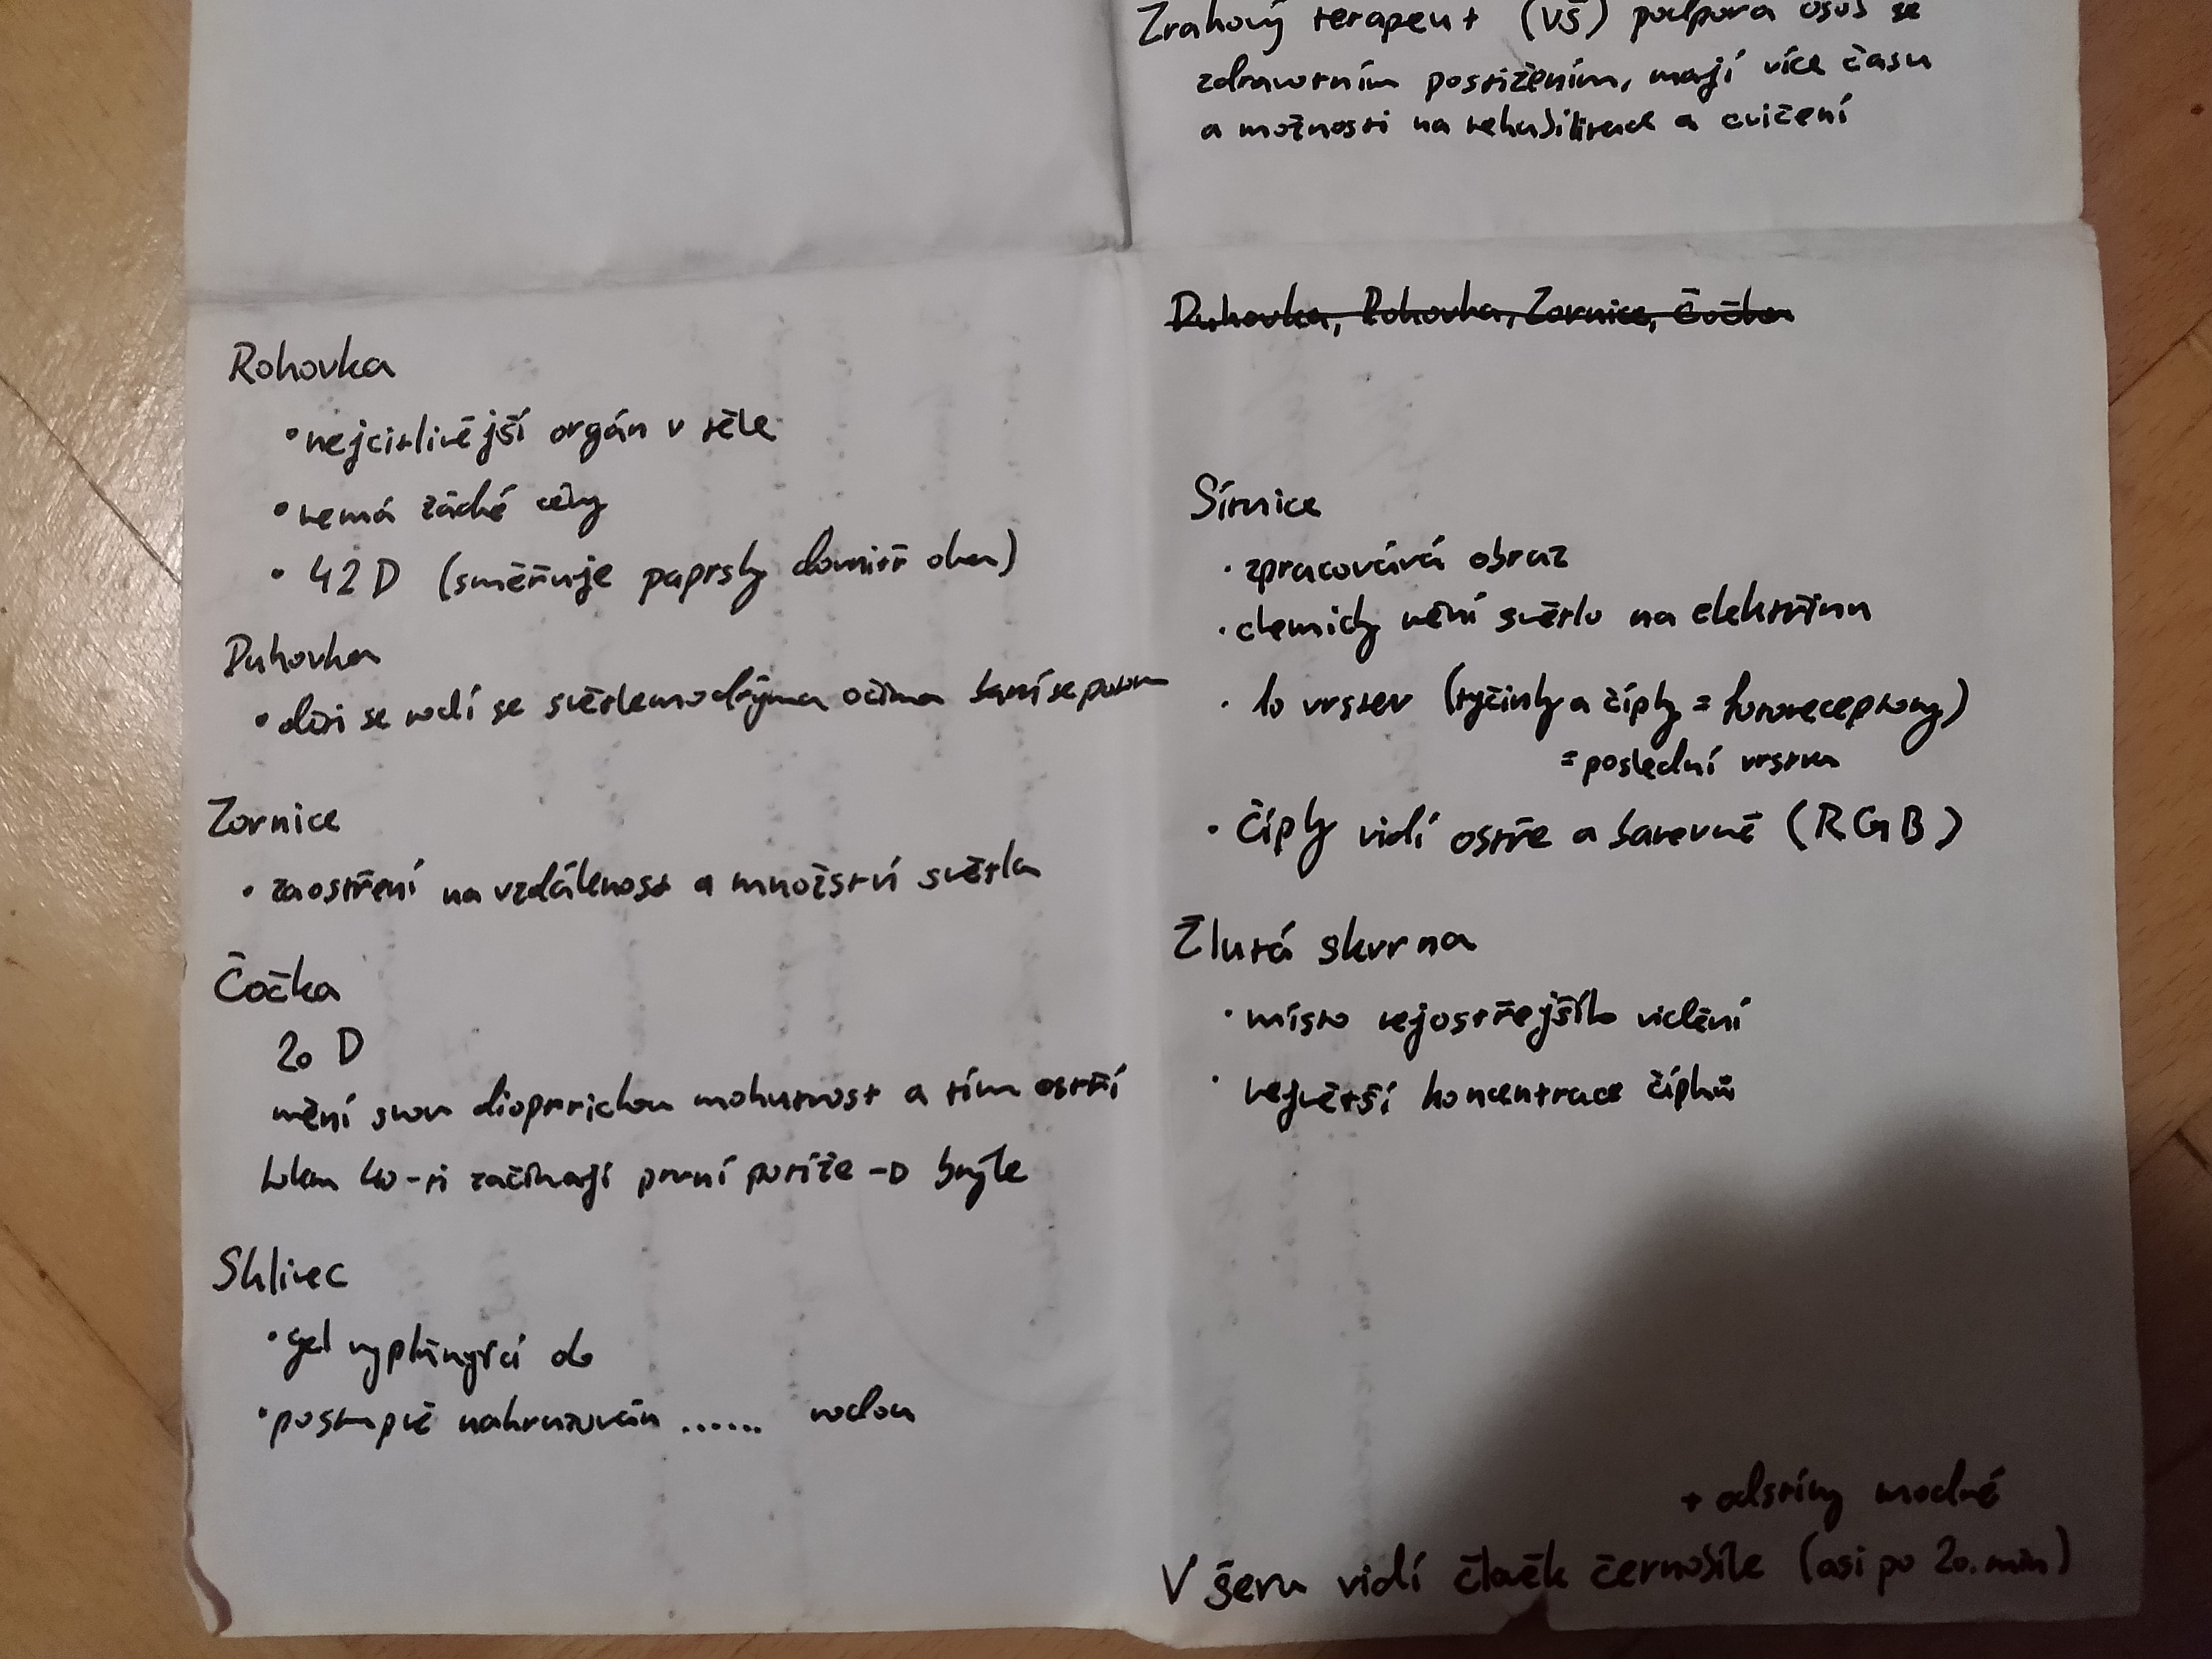 Zrakový terapeut (VŠ) podpora osob se
zdravotním postižením, mají více času
a možnosti na rehabilitace a cvičení
Rohovka
• nejcitlivější orgán v těle
• nemá žádné cévy
• 42 D (směřuje paprsky dovnitř oka)
Duhovka
• děti se rodí se světlemodrýma očima barví se potom
Zornice
• zaostření na vzdálenost a množství světla
Čočka
20 D
mění svou dioptrickou mohutnost a tím ostří
kolem 40-ti začínají první potíže → brýle
Sklivec
• gel vyplňující oko
• postupně nahrazován ...... vodou
Duhovka, Rohovka, Zornice, Čočka
Sítnice
• zpracovává obraz
• chemicky mění světlo na elektřinu
• 10 vrstev (tyčinky a čípky = fotoreceptory)
= poslední vrstva
• čípky vidí ostře a barevně (RGB)
Žlutá skvrna
• místo nejostřejšího vidění
• největší koncentrace čípků
+ odstíny modré
V šeru vidí člověk černobíle (asi po 20. min)